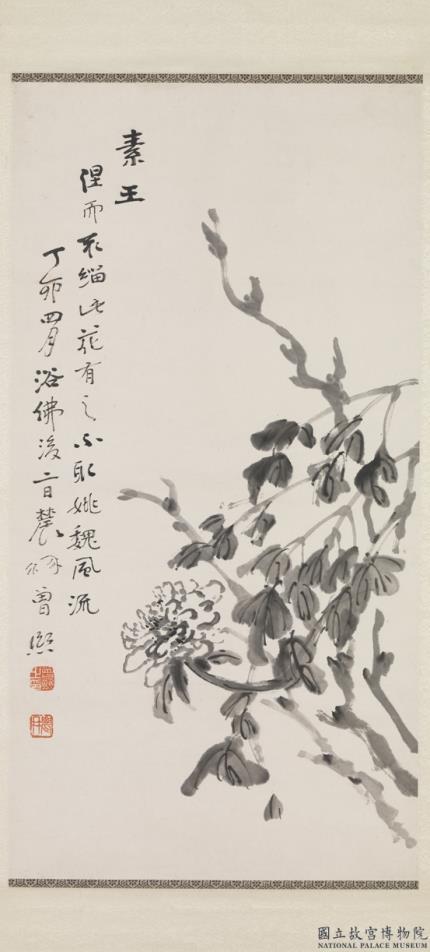 素王
涅而不緇此花有之不取姚魏風流
丁卯四月浴佛後二日農髯曾熙
國立故宮博物院
NATIONAL PALACE MUSEUM